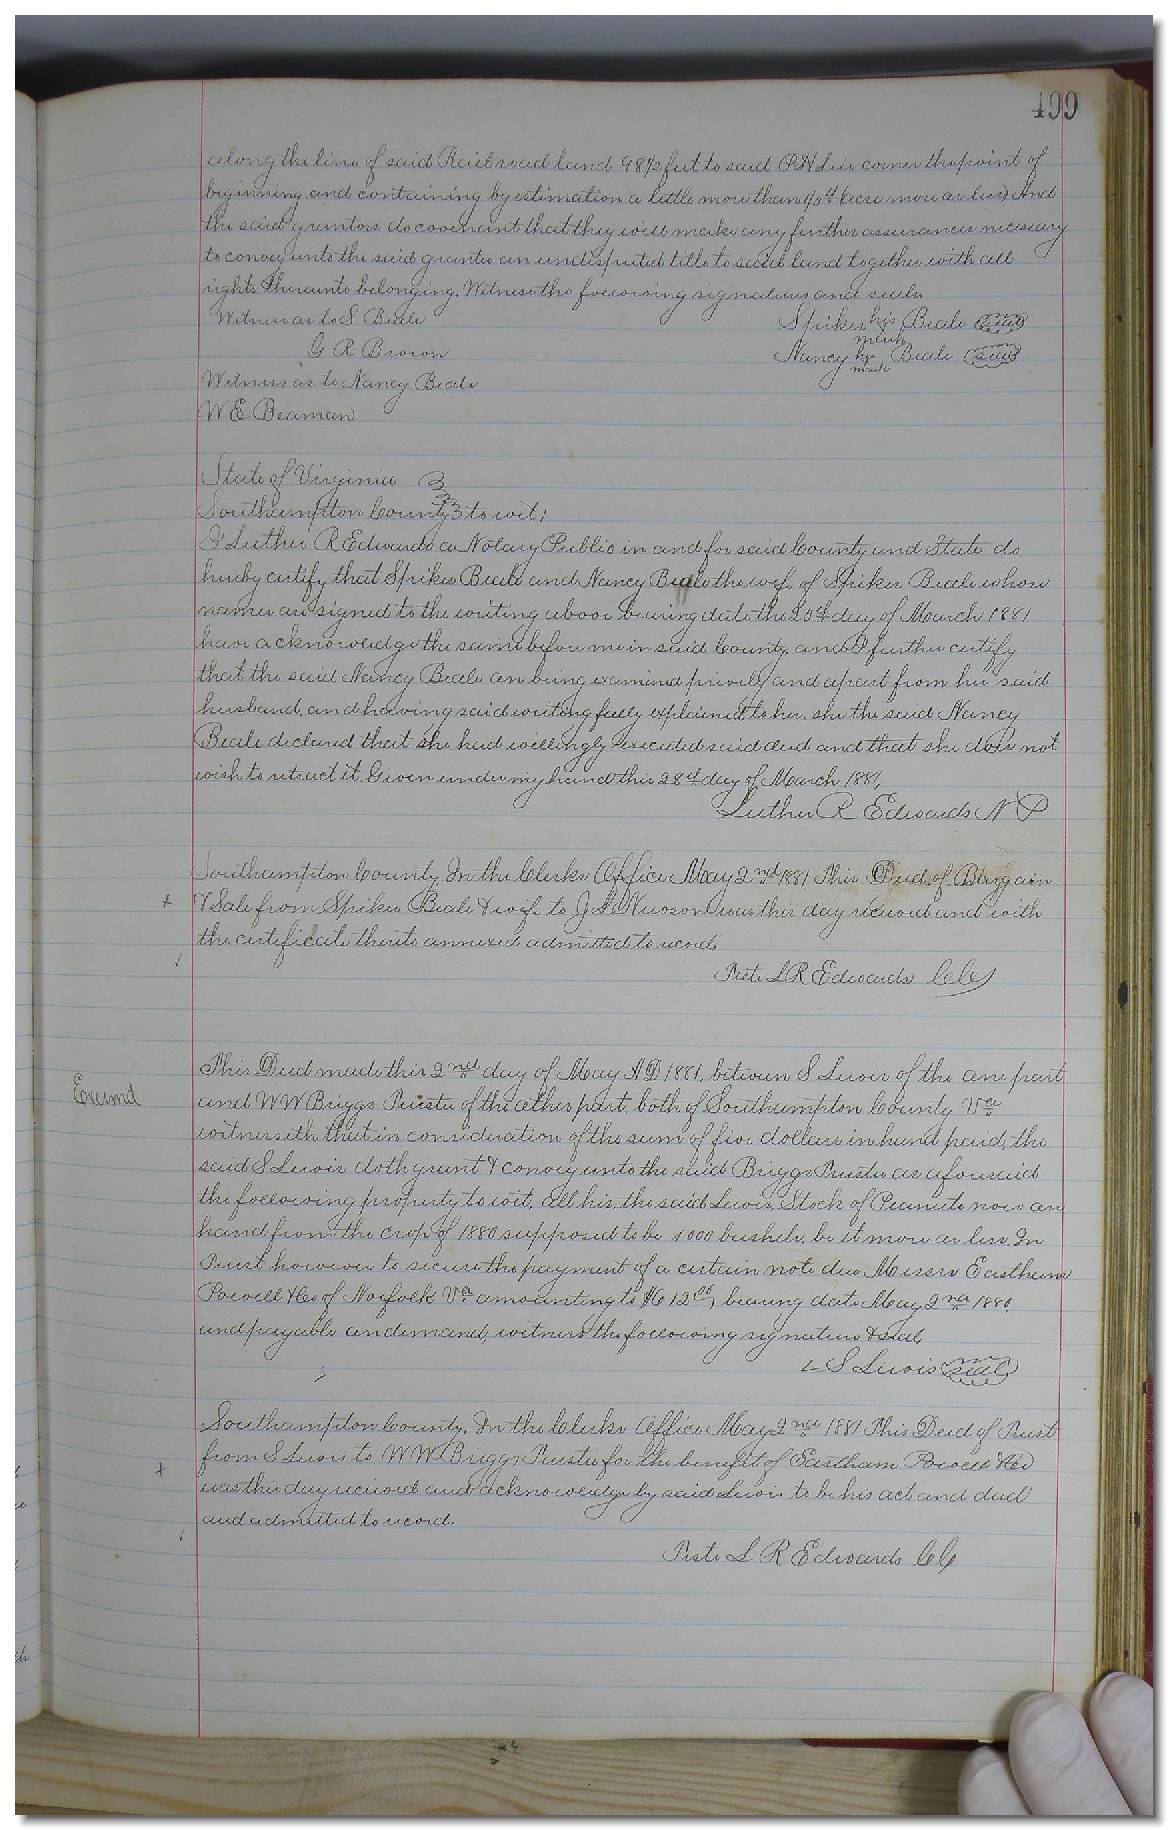 499
along the line of said Rail road land 98½ feet to said P H Lee corner the point of
beginning and containing by estimation a little more than 1/5th (acre more or less) And
the said grantors do covenant that they will make any further assurances necessary
to convey unto the said grantee an undisputed title to said land together with all
rights thereunto belonging. Witness the following signatures and seals
Witness as to S Beale
Spikes his Beale seal
mark
G R Brown
Nancy her Beale seal
mark
Witness as to Nancy Beale
W E Beaman
State of Virginia
Southampton County to wit;
I Luther R Edwards a Notary Public in and for said County and State do
hereby certify that Spikes Beale and Nancy Beale the wife of Spikes Beale whose
names are signed to the writing above bearing date the 25th day of March 1881
have acknowledge the same before me in said County, and I further certify
that the said Nancy Beale on being examined privily and apart from her said
husband, and having said writing fully explained to her, she the said Nancy
Beale declared that she had willingly executed said deed and that she does not
wish to retract it. Given under my hand this 28th day of March 1881,
Luther R Edwards N P
Southampton County, In the Clerks Office May 2nd 1881 This Deed of Bargain
& Sale from Spikes Beale & wife to J Newsom was this day received and with
the certificate thereto annexed admitted to record,
Teste L R Edwards CC
This Deed made this 2nd day of May A D 1881, between S Lewis of the one part
Examd
and W W Briggs Trustee of the other part, both of Southampton County Va
witnesseth that in consideration of the sum of five dollars in hand paid, the
said S Lewis doth grant & convey unto the said Briggs Trustee as aforesaid
the following property to wit, all his, the said Lewis, Stock of Peanuts now on
hand from the crop of 1880 supposed to be 1000 bushels, be it more or less. In
Trust however to secure the payment of a certain note due Messrs Eastham
Powell & Co of Norfolk Va amounting to $612 00, bearing date May 2nd 1880,
and payable on demand, witness the following signature & seal,
S Lewis seal
Southampton County, In the Clerks Office May 2nd 1881 This Deed of Trust
from S Lewis to W W Briggs Trustee for the benefit of Eastham Powell & Co
was this day received and acknowledge by said Lewis to be his act and deed
and admitted to record.
Teste L R Edwards CC